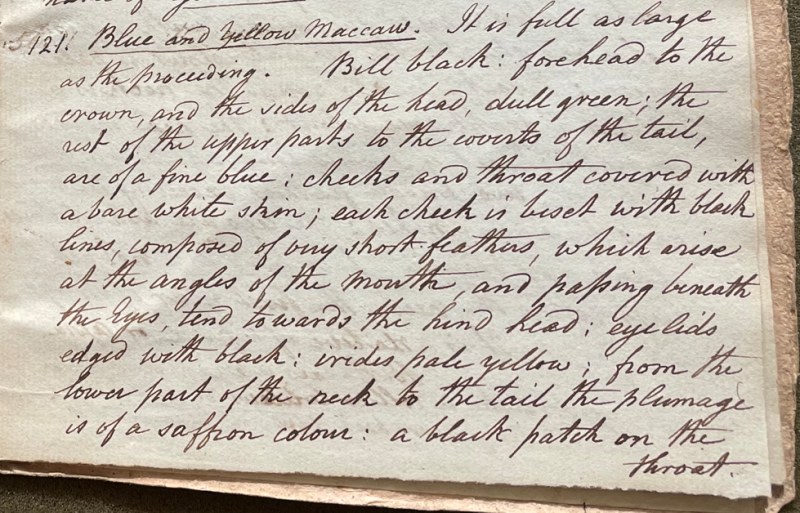 121. Blue and Yellow Maccaw. It is full as large
as the preceeding. Bill black: forehead to the
crown, and the sides of the head, dull green; the
rest of the upper parts to the coverts of the tail,
are of a fine blue: cheeks and throat covered with
a bare white skin; each cheek is beset with black
lines, composed of very short feathers, which arise
at the angles of the mouth, and paſsing beneath
the Eyes, tend towards the hind head: eyelids
edged with black: irides pale yellow; from the
lower part of the neck to the tail the plumage
is of a saffron colour: a black patch on the
throat.